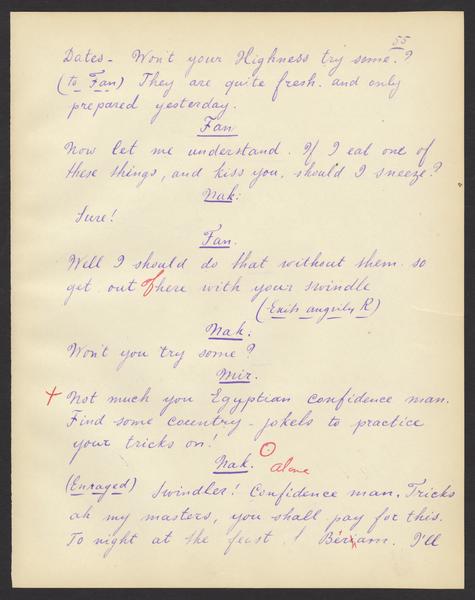 55
Dates - Won't your Highness try some.?
(to Fan) They are quite fresh. and only
prepared yesterday.
Fan.
Now let me understand. If I eat one of
these things, and kiss you, should I sneeze?
Nak:
Sure!
Fan.
Well I should do that without them. so
get out of here with your swindle
(Exits angrily R)
Nak:
Won't you try some?
Mir.
+ Not much you Egyptian confidence man.
Find some country-jokels to practice
your tricks on!
Nak. alone
(Enraged) Swindler! Confidence man. Tricks
ah my masters, you shall pay for this.
To night at the feast I'll